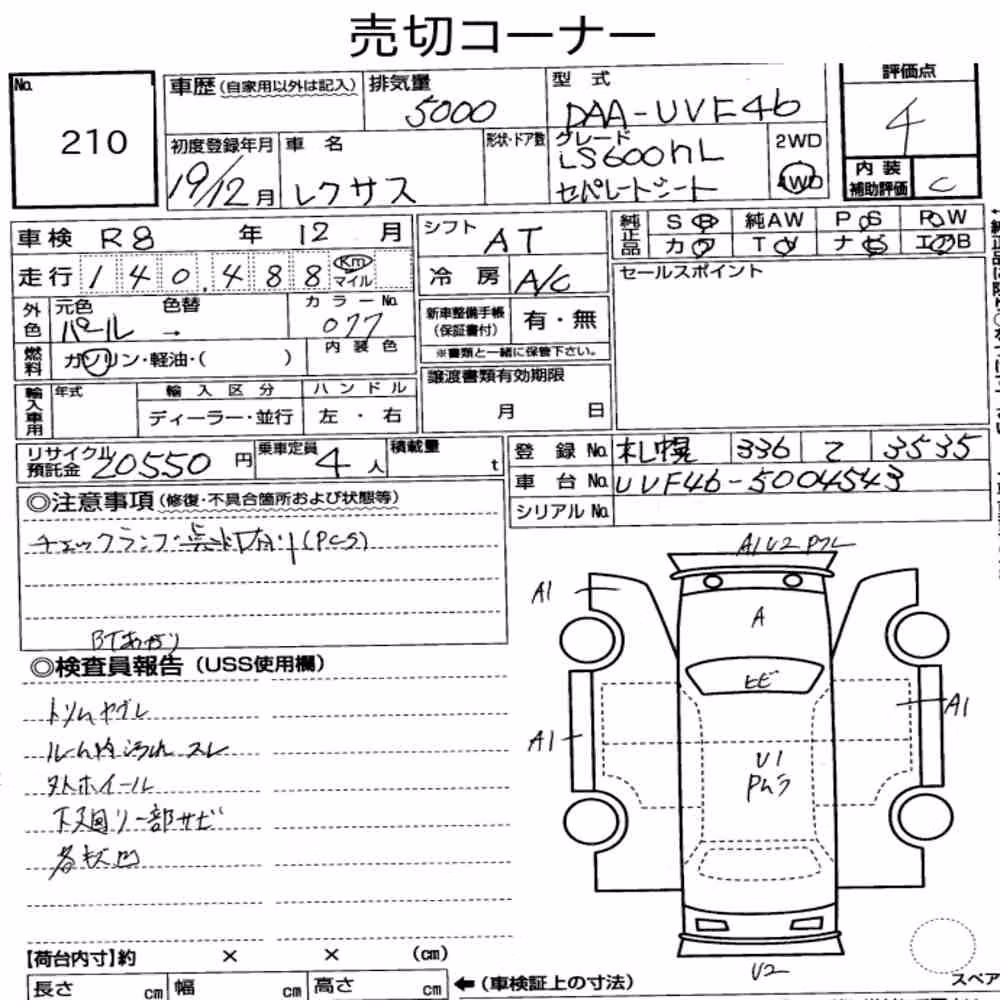 売切コーナー
No. 210
車歴(自家用以外は記入) 排気量 5000 型式 DAA-UVF46 評価点 4
初度登録年月 19/12月 車名 レクサス 形状・ドア数 グレード LS600hL セパレートシート 2WD 4WD 内装補助評価 C
車検 R8年 12月 シフト AT 純正品 SR 純AW PS PW
走行 140,488 Km マイル 冷房 A/C カワ TV ナビ エアB
外色 元色 パール 色替 → カラーNo. 077 新車整備手帳(保証書付) 有・無 セールスポイント
燃料 ガソリン・軽油・( ) 内装色 ※書類と一緒に保管下さい。
輸入車用 年式 輸入区分 ディーラー・並行 ハンドル 左・右 譲渡書類有効期限 月 日
リサイクル預託金 20550円 乗車定員 4人 積載量 t 登録No. 札幌 336 て 3535
車台No. UVF46-5004543
シリアルNo.
◎注意事項(修復・不具合箇所および状態等)
チェックランプ点灯有り(PCS)
BTあがり
◎検査員報告(USS使用欄)
トリムヤブレ
ルーム内汚れ スレ
外ホイール
下廻り一部サビ
各キズ凹
A1 U2 Pワレ
A1
A
ヒビ
A1
A1
U1
Pムラ
U2
【荷台内寸】約 × × (cm)
長さ cm 幅 cm 高さ cm ←(車検証上の寸法)
スペア